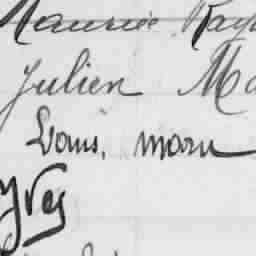 Maurice Ray
Julien Ma
Louis. marn
Yves